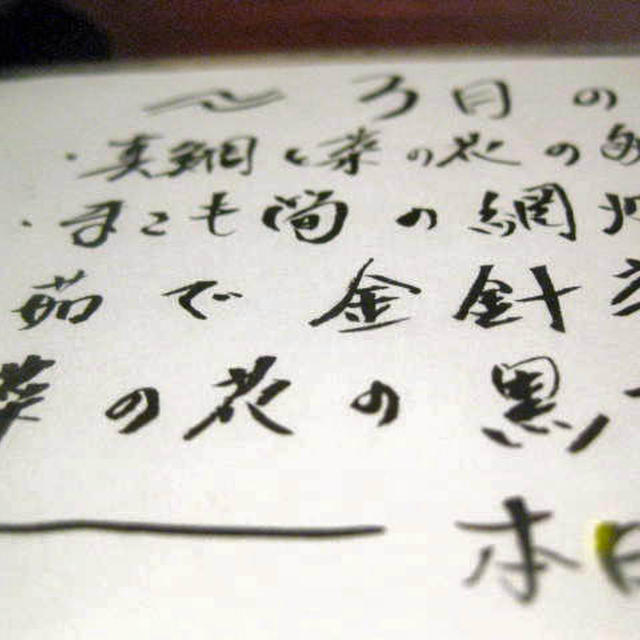 の
・真鯛と菜の花の
・まこも筍の網
茹で金針
の花の黒
本